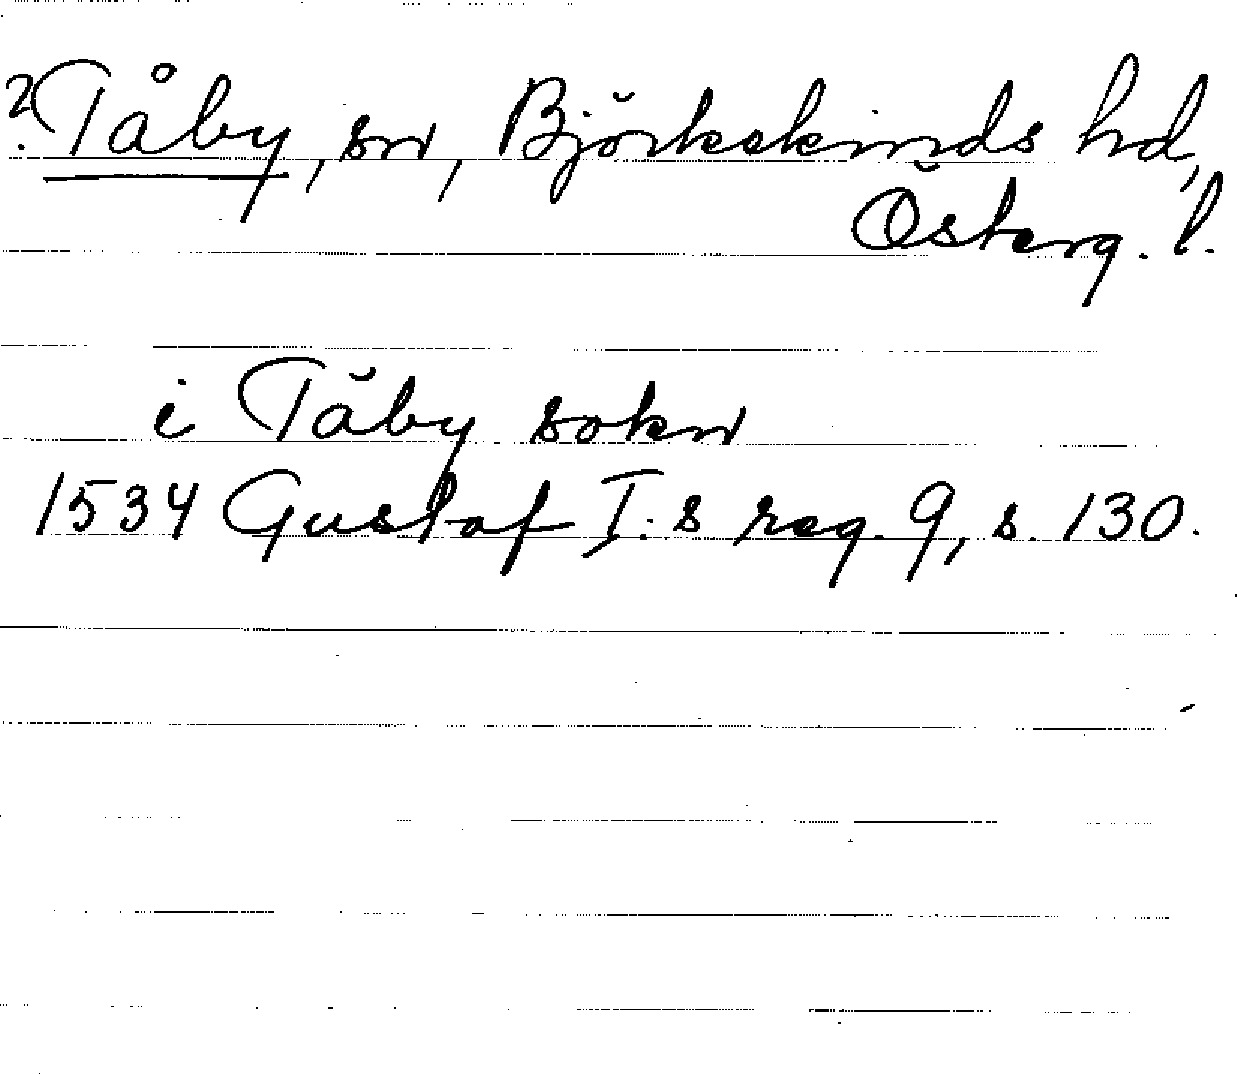 ? Tåby, sn, Björkekinds hd,
Österg. l.
i Tåby sokn
1534 Gustaf I:s reg. 9, s. 130.